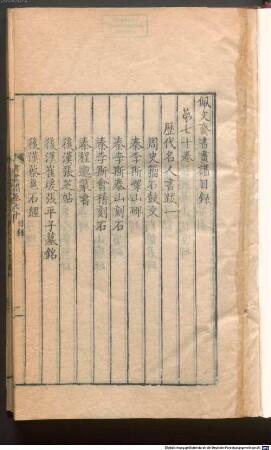 佩文齋書畫譜目錄
第七十卷
歷代名人書跋一
周史籀石鼓文
秦李斯嶧山碑
秦李斯泰山刻石
秦李斯會稽刻石
秦程邈篆書
後漢張芝帖
後漢崔瑗張平子墓銘
後漢蔡邕石經